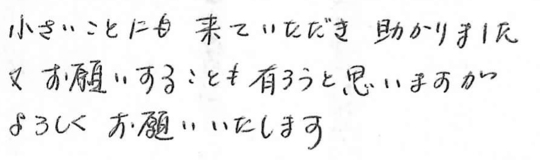 小さいことにも 来ていただき 助かりました
又 お願いすることも有ろうと思いますが
よろしく お願いいたします